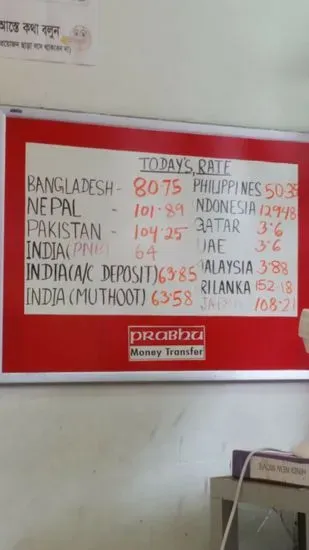 আস্তে কথা বলুন
TODAY'S, RATE
BANGLADESH - 80.75
NEPAL - 101.89
PAKISTAN - 104.25
INDIA(PNB) 64
INDIA(A/C DEPOSIT) 63.85
INDIA(MUTHOOT) 63.58
PHILIPPINES 50.35
NDONESIA 12948
QATAR 3.6
UAE 3.6
ALAYSIA 3.88
RILANKA 152.18
108.21
PRABHU
Money Transfer
HINDI NEW MOVIE